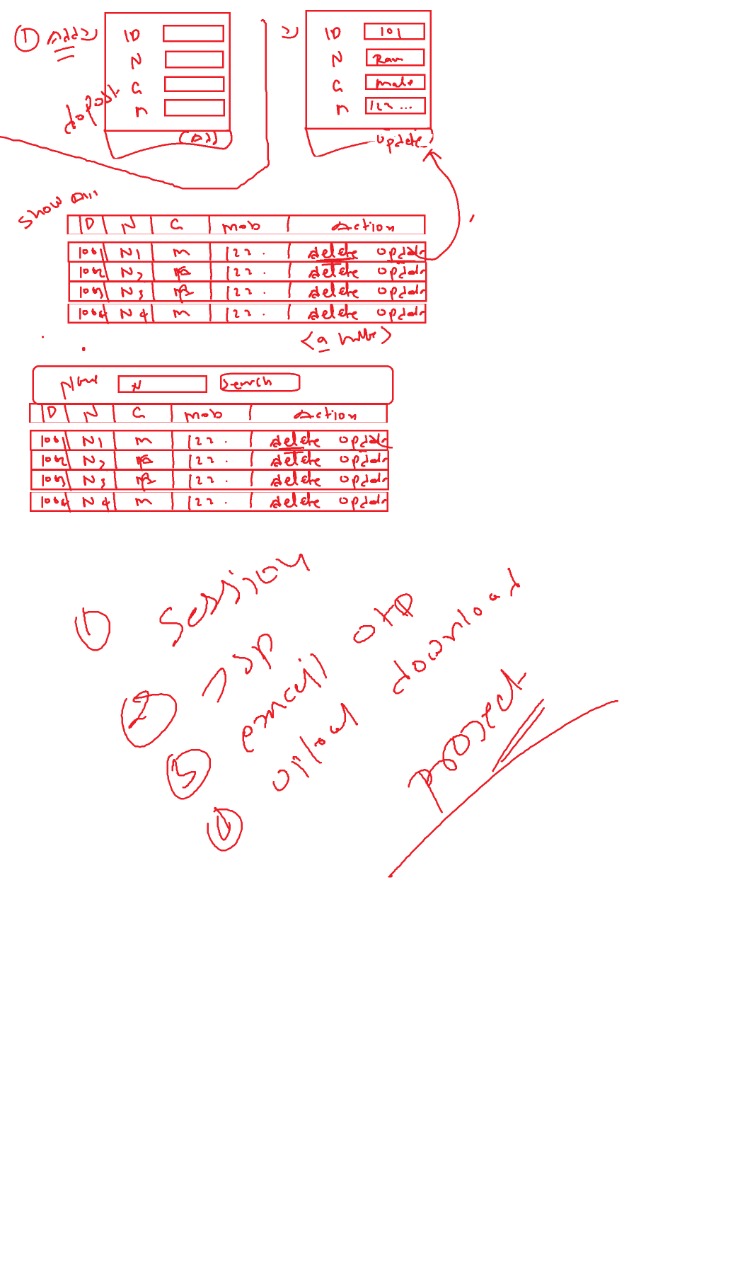 ① Add
ID
N
G
M
doPost
Add
2)
ID 101
N Ram
G Male
M 122...
Update
Show All
ID N G Mob Action
1001 N1 M 122. delete Update
1002 N2 122. delete Update
1003 N3 122. delete Update
1004 N4 M 122. delete Update
<a
Name N Search
ID N G Mob Action
1001 N1 M 122. delete Update
1002 N2 122. delete Update
1003 N3 122. delete Update
1004 N4 M 122. delete Update
① Session
② JSP
③ email OTP
④ upload download
Project